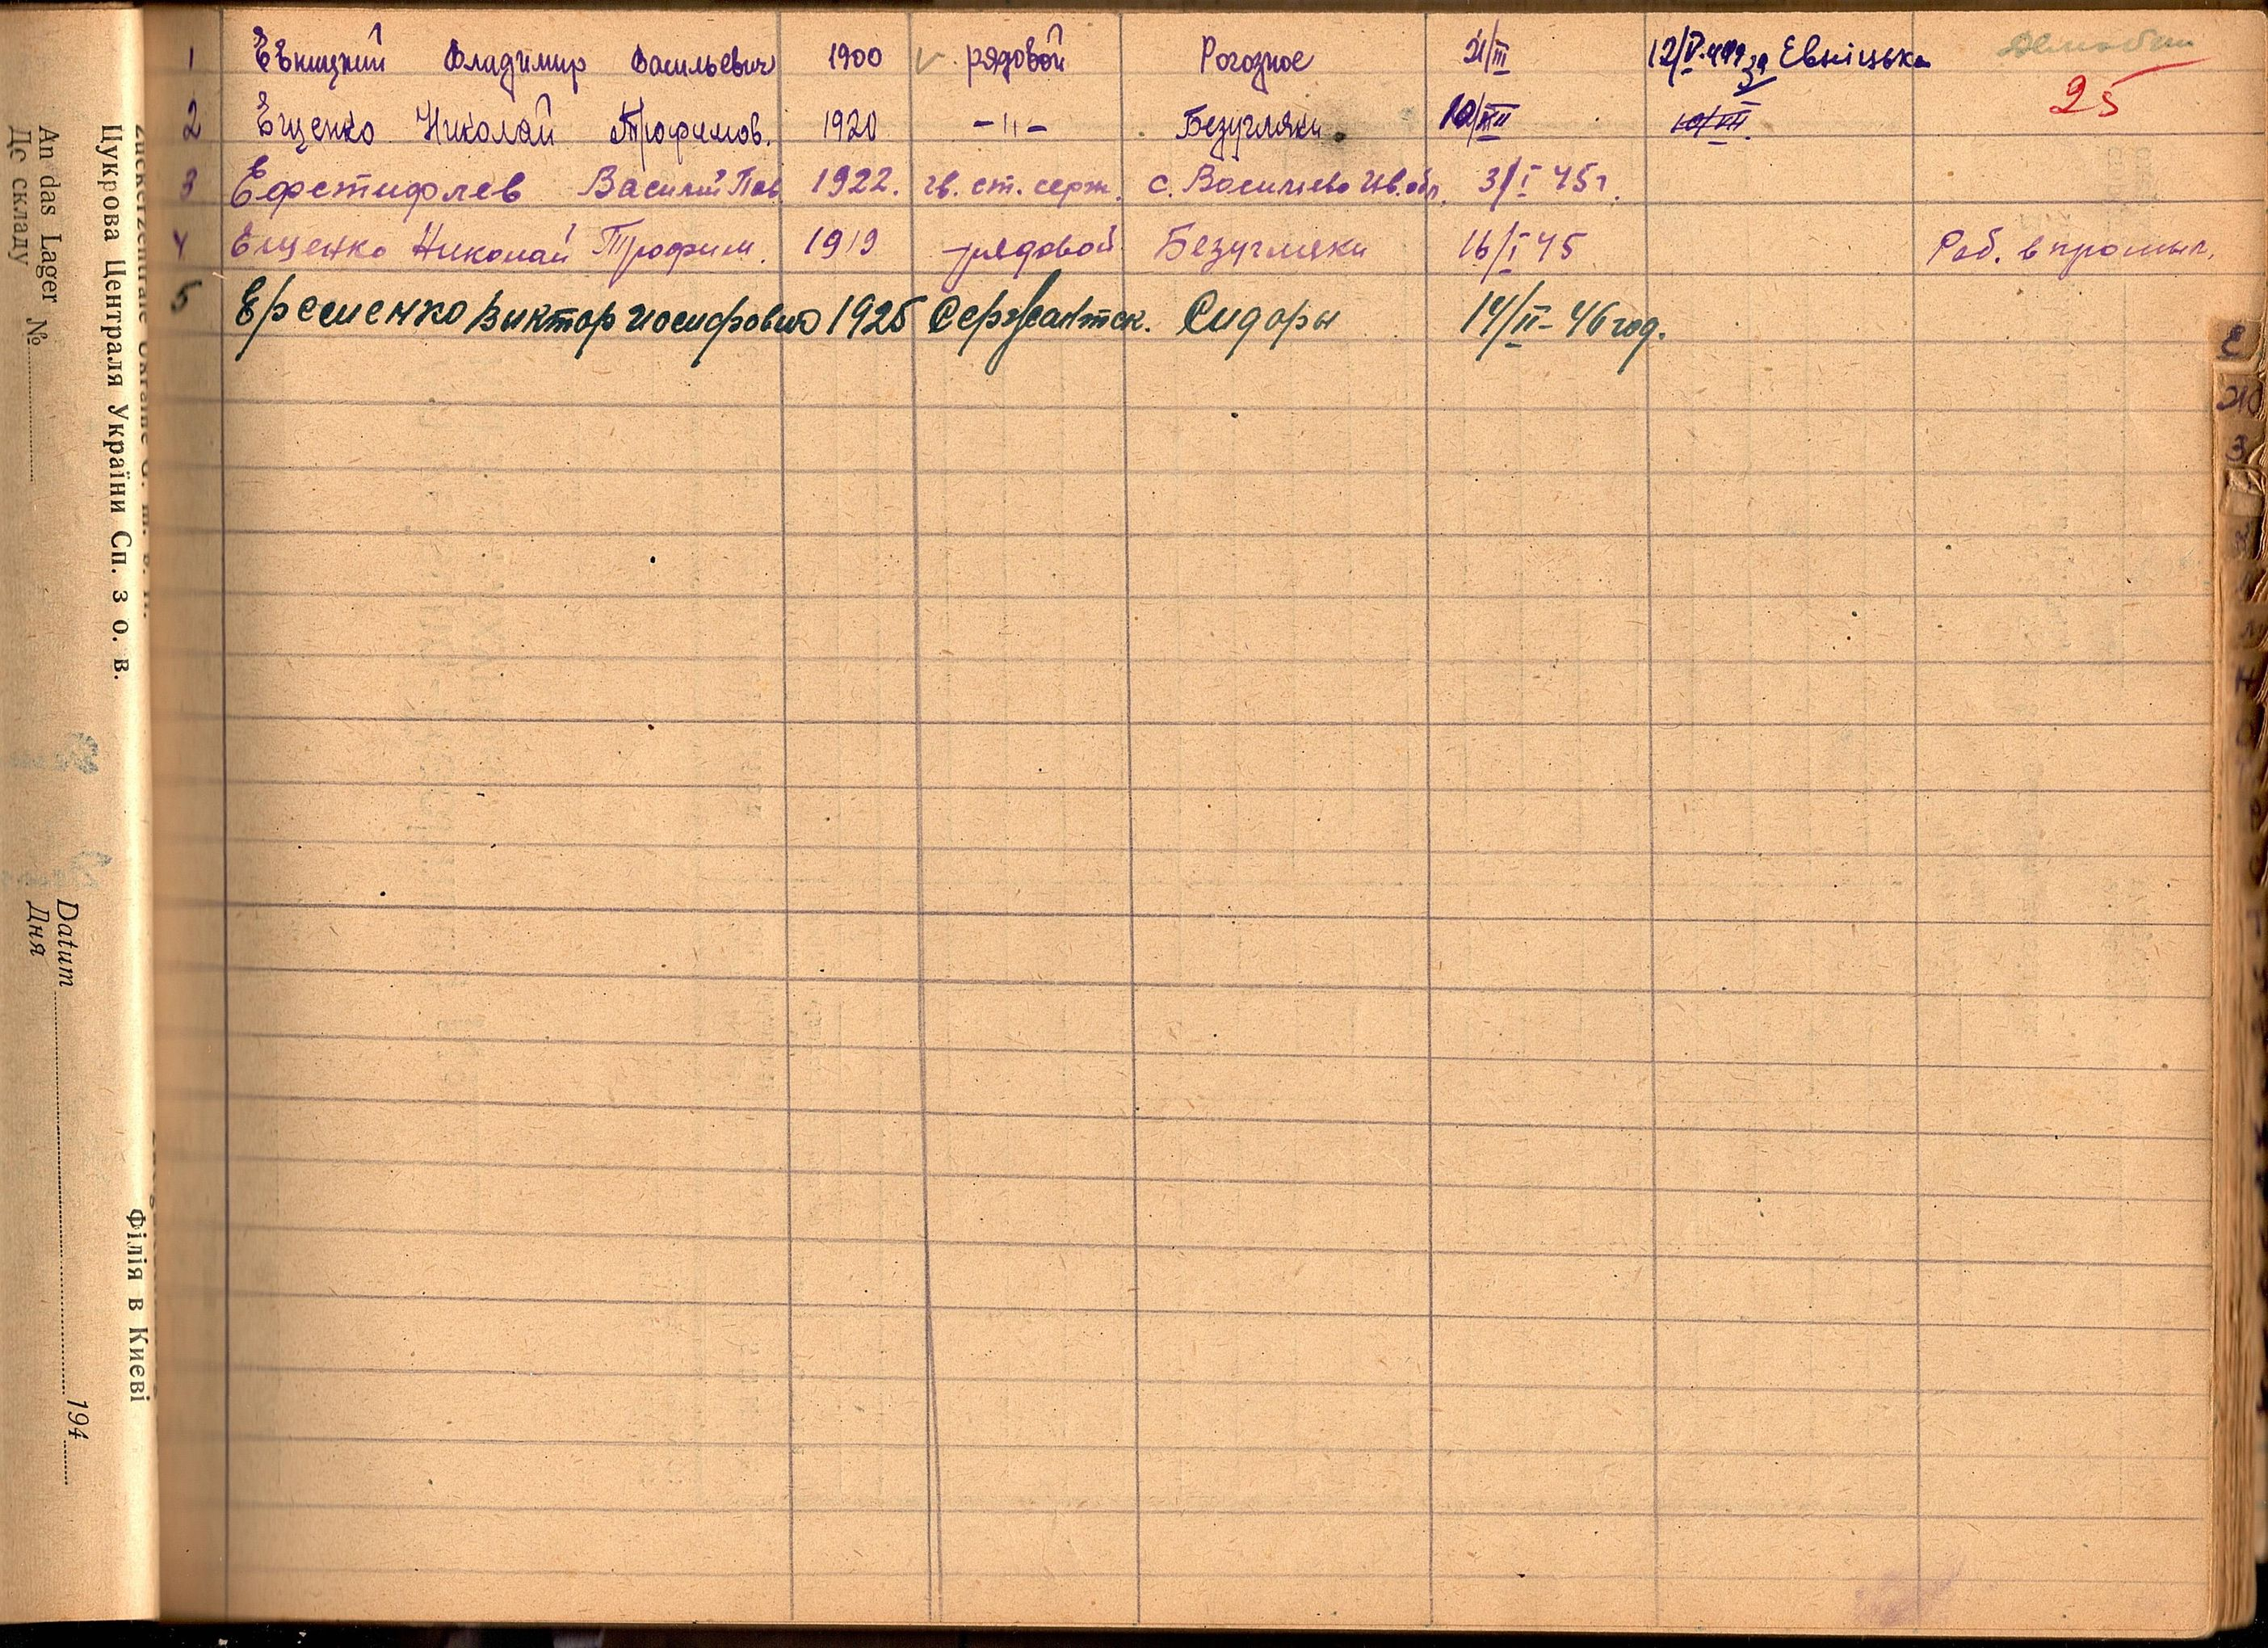 1 Евницкий Владимир Васильевич 1900 v рядовой Рогозное 21/III 12/V-44 за Евніцька
25
2 Ещенко Николай Трофимов. 1920 -"- Безугляки 10/III 10/III
3 Василий Пав 1922. гв. ст. серж. с. Ив. обл. 31/I 45 г.
4 Ещенко Николай Трофим. 1919 рядовой Безугляки 16/I 45 Раб. в промыл.
5 Еременко Виктор Иосифович 1925 Сержантск. Сидоры 14/II-46 год.
Цукрова Централя України Сп. з о. в.
Філія в Києві
An das Lager №
Де складу
Datum 194
Дня
Е
Ж
З